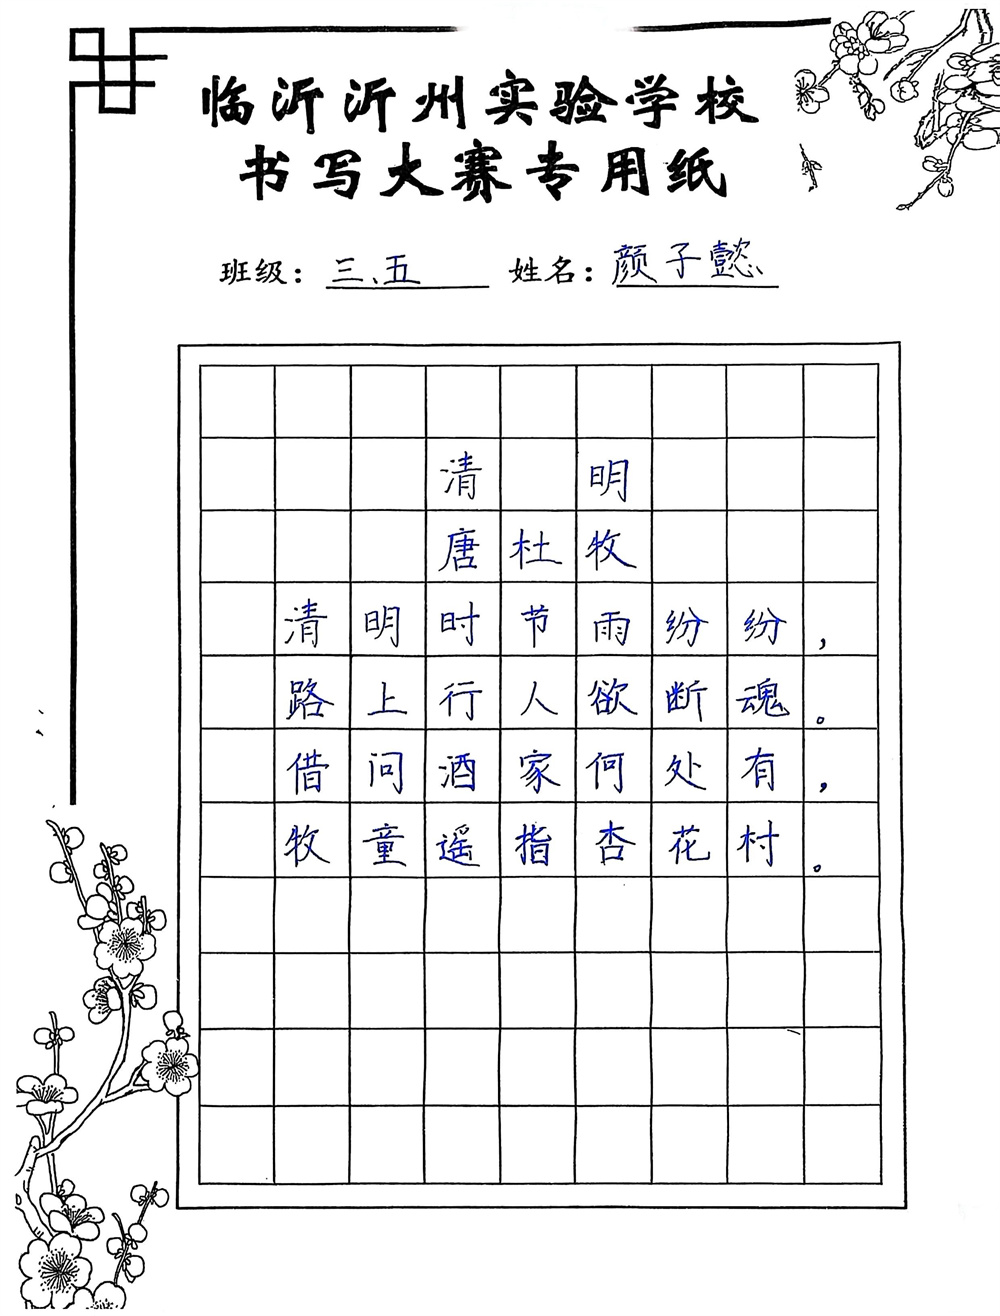 临沂沂州实验学校
书写大赛专用纸
班级：三、五 姓名：颜子懿
清 明
唐杜牧
清明时节雨纷纷，
路上行人欲断魂。
借问酒家何处有，
牧童遥指杏花村。